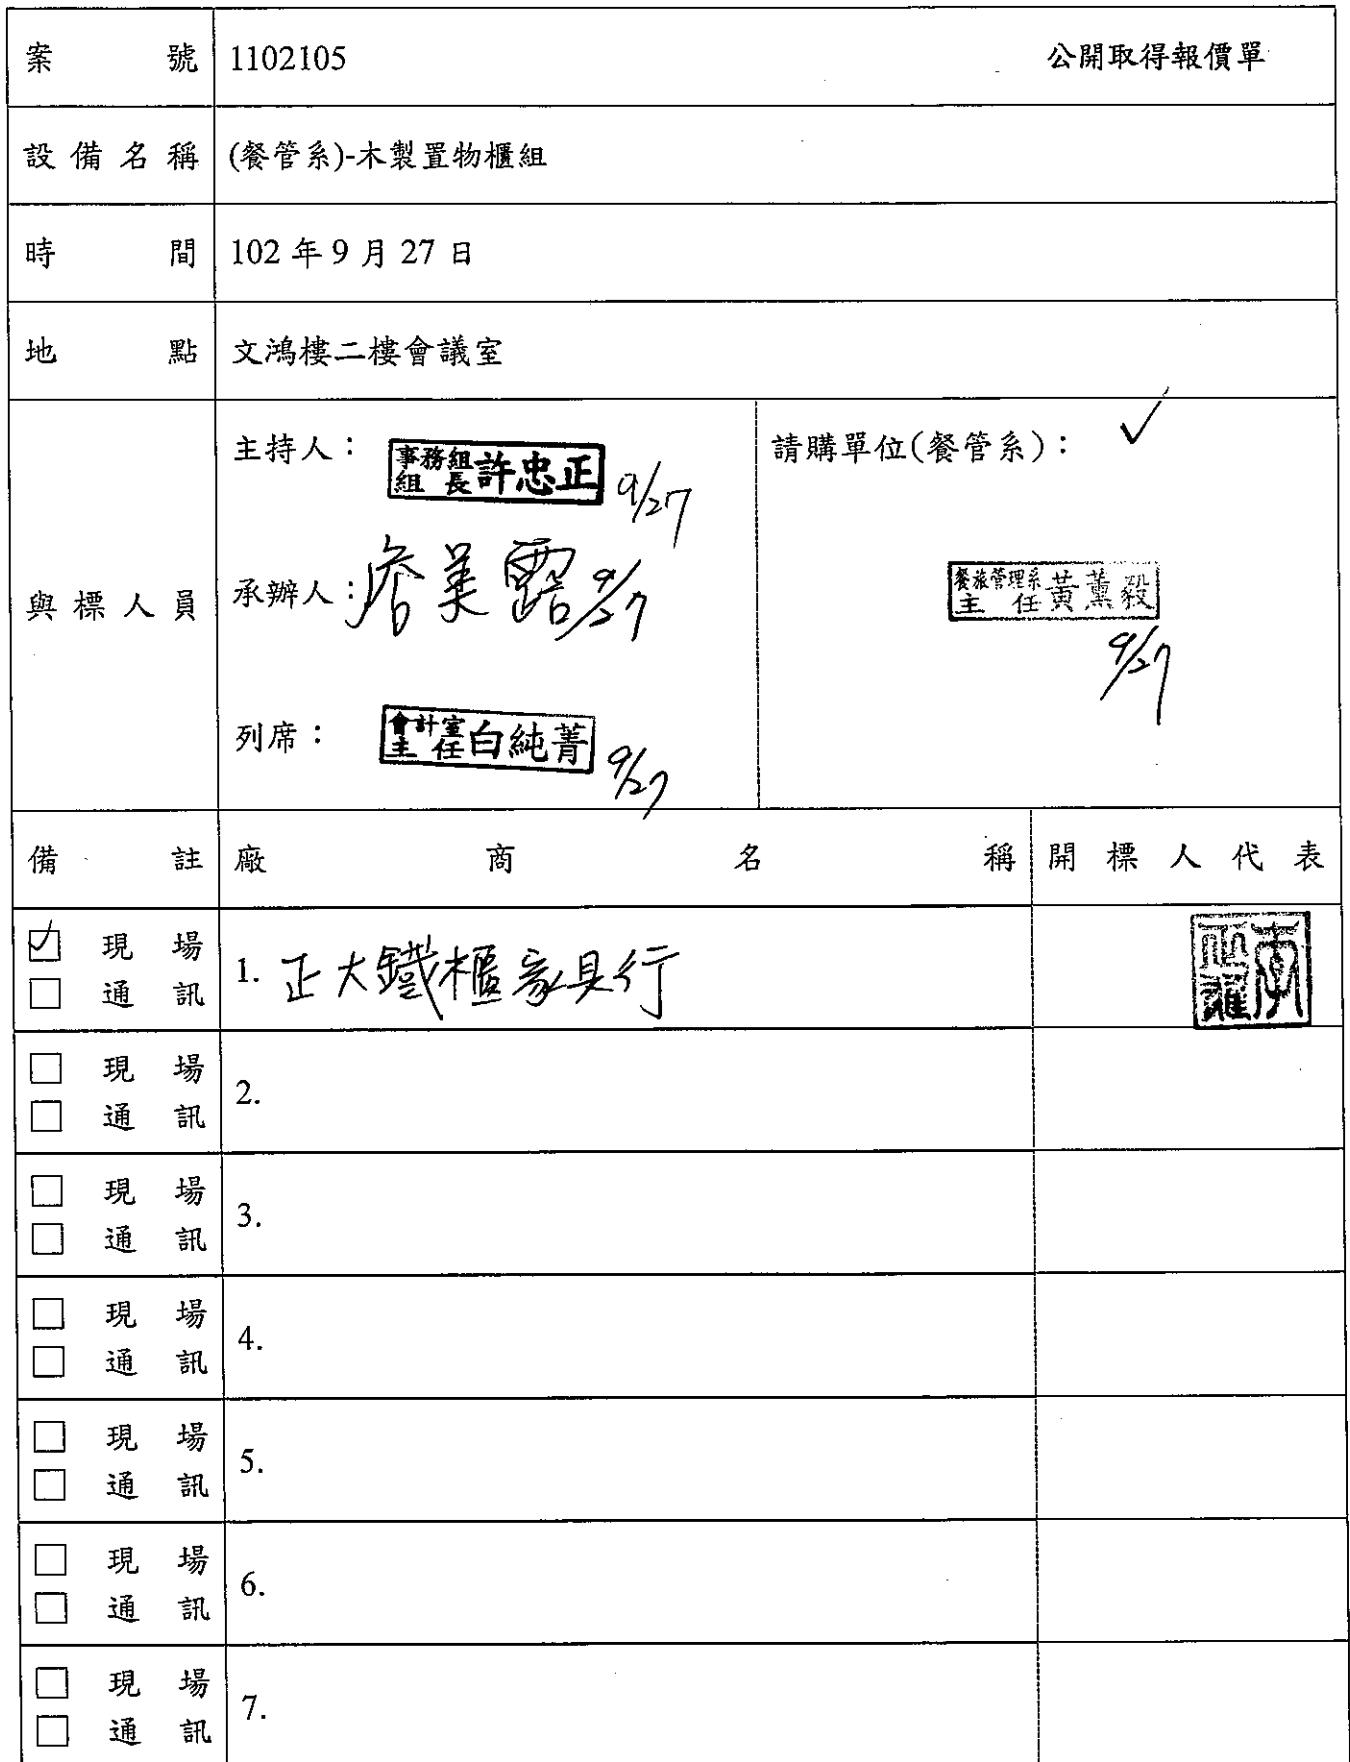 案號 1102105 公開取得報價單
設備名稱 (餐管系)-木製置物櫃組
時間 102 年 9 月 27 日
地點 文鴻樓二樓會議室
與標人員
主持人：
事務組
組長 許忠正 9/27
承辦人：美露 9/27
列席：
會計室
主任 白純菁 9/27
請購單位(餐管系)： ✓
餐旅管理系
主任 黃薰毅
9/27
備註 廠商名稱 開標人代表
☑ 現場
□ 通訊
1. 正大鐵櫃家具行
□ 現場
□ 通訊
2.
□ 現場
□ 通訊
3.
□ 現場
□ 通訊
4.
□ 現場
□ 通訊
5.
□ 現場
□ 通訊
6.
□ 現場
□ 通訊
7.